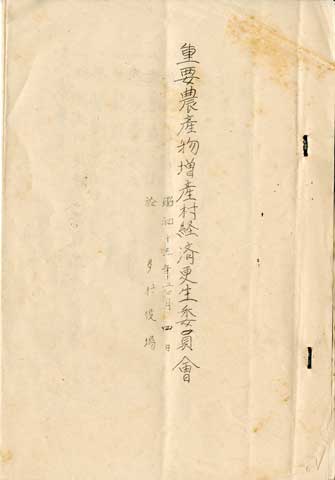 重要農産物増産村経済更生委員會
昭和十三年 月 四日
於 村役場